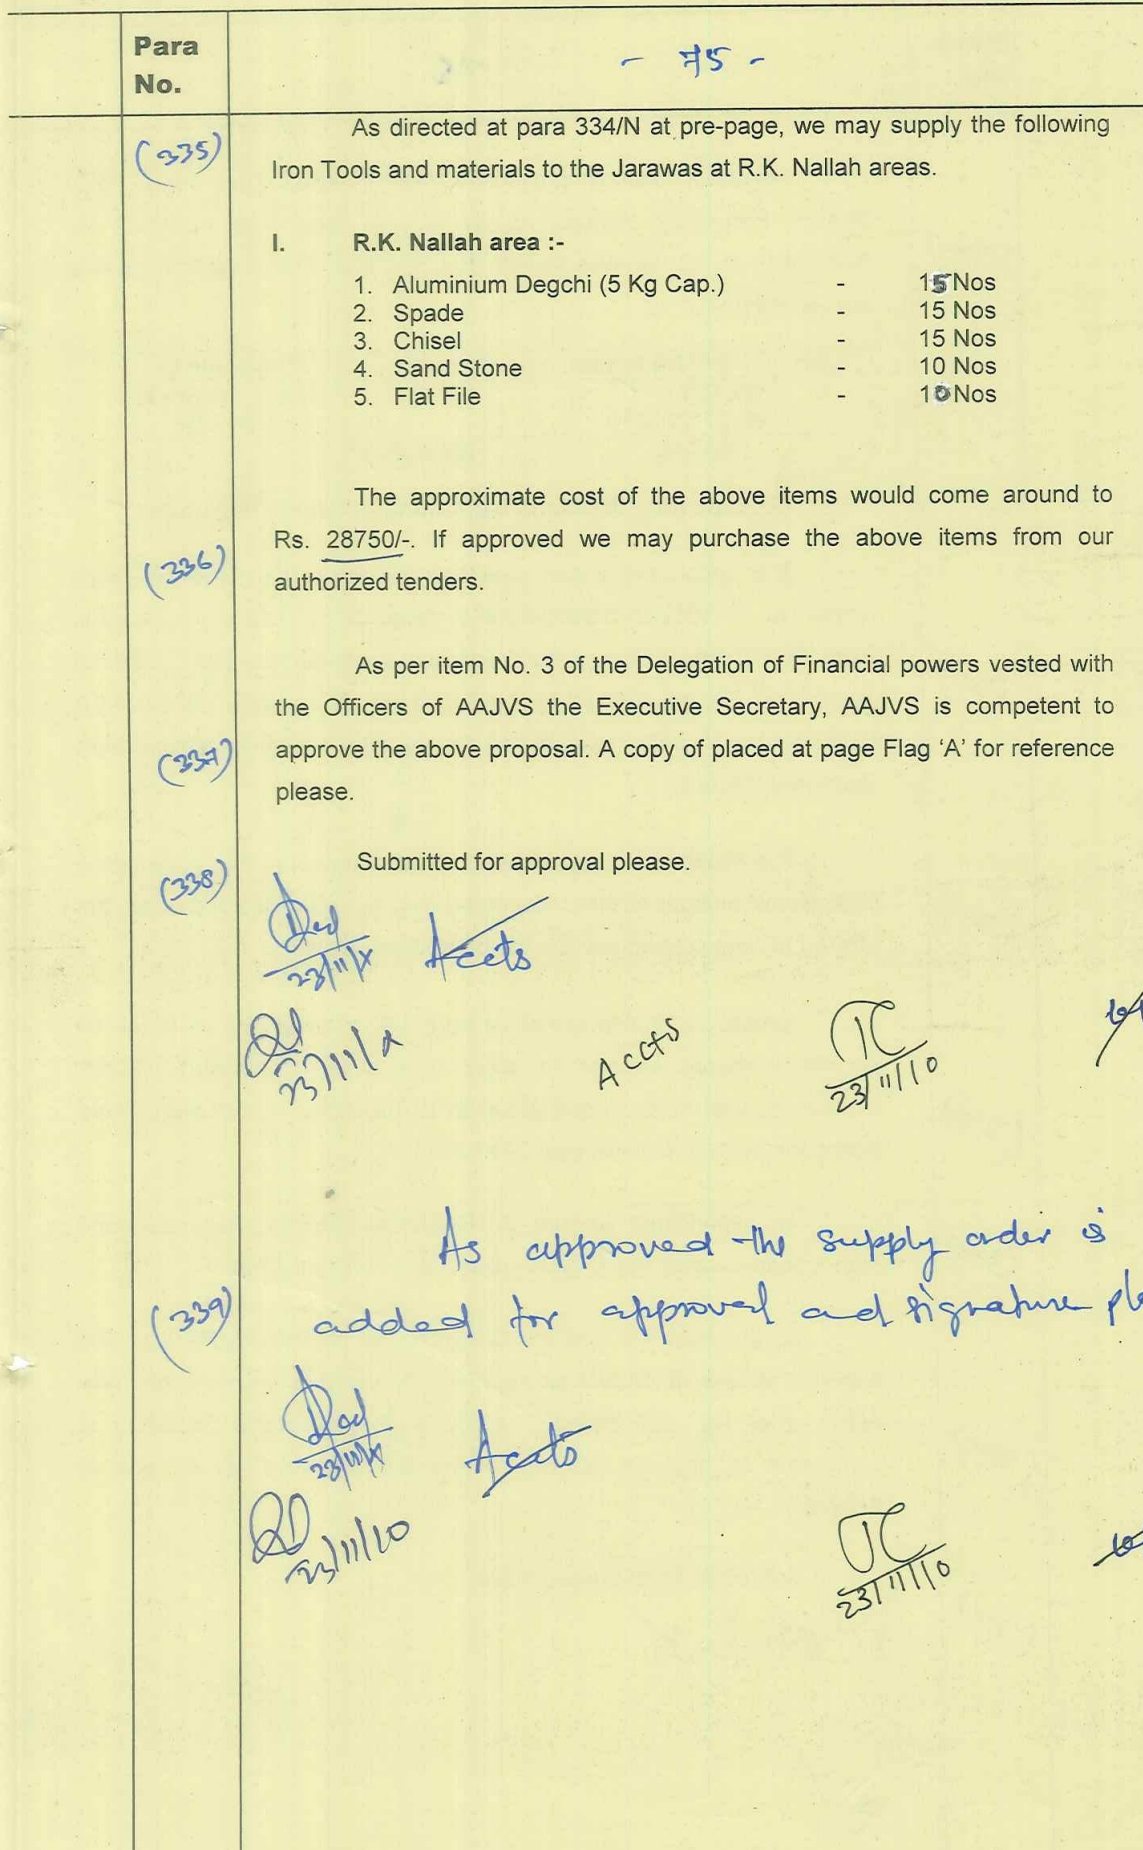 Para
No.
- 75 -
(335)
As directed at para 334/N at pre-page, we may supply the following
Iron Tools and materials to the Jarawas at R.K. Nallah areas.
I. R.K. Nallah area :-
1. Aluminium Degchi (5 Kg Cap.) - 15 Nos
2. Spade - 15 Nos
3. Chisel - 15 Nos
4. Sand Stone - 10 Nos
5. Flat File - 10 Nos
The approximate cost of the above items would come around to
Rs. 28750/-. If approved we may purchase the above items from our
(336)
authorized tenders.
As per item No. 3 of the Delegation of Financial powers vested with
the Officers of AAJVS the Executive Secretary, AAJVS is competent to
(337)
approve the above proposal. A copy of placed at page Flag 'A' for reference
please.
Submitted for approval please.
(338)
23/11/X Accts
23/11/
Accts
23/11/10
As approved the supply order is
(339)
added for approval and signature
23/11/X Accts
23/11/10
23/11/10